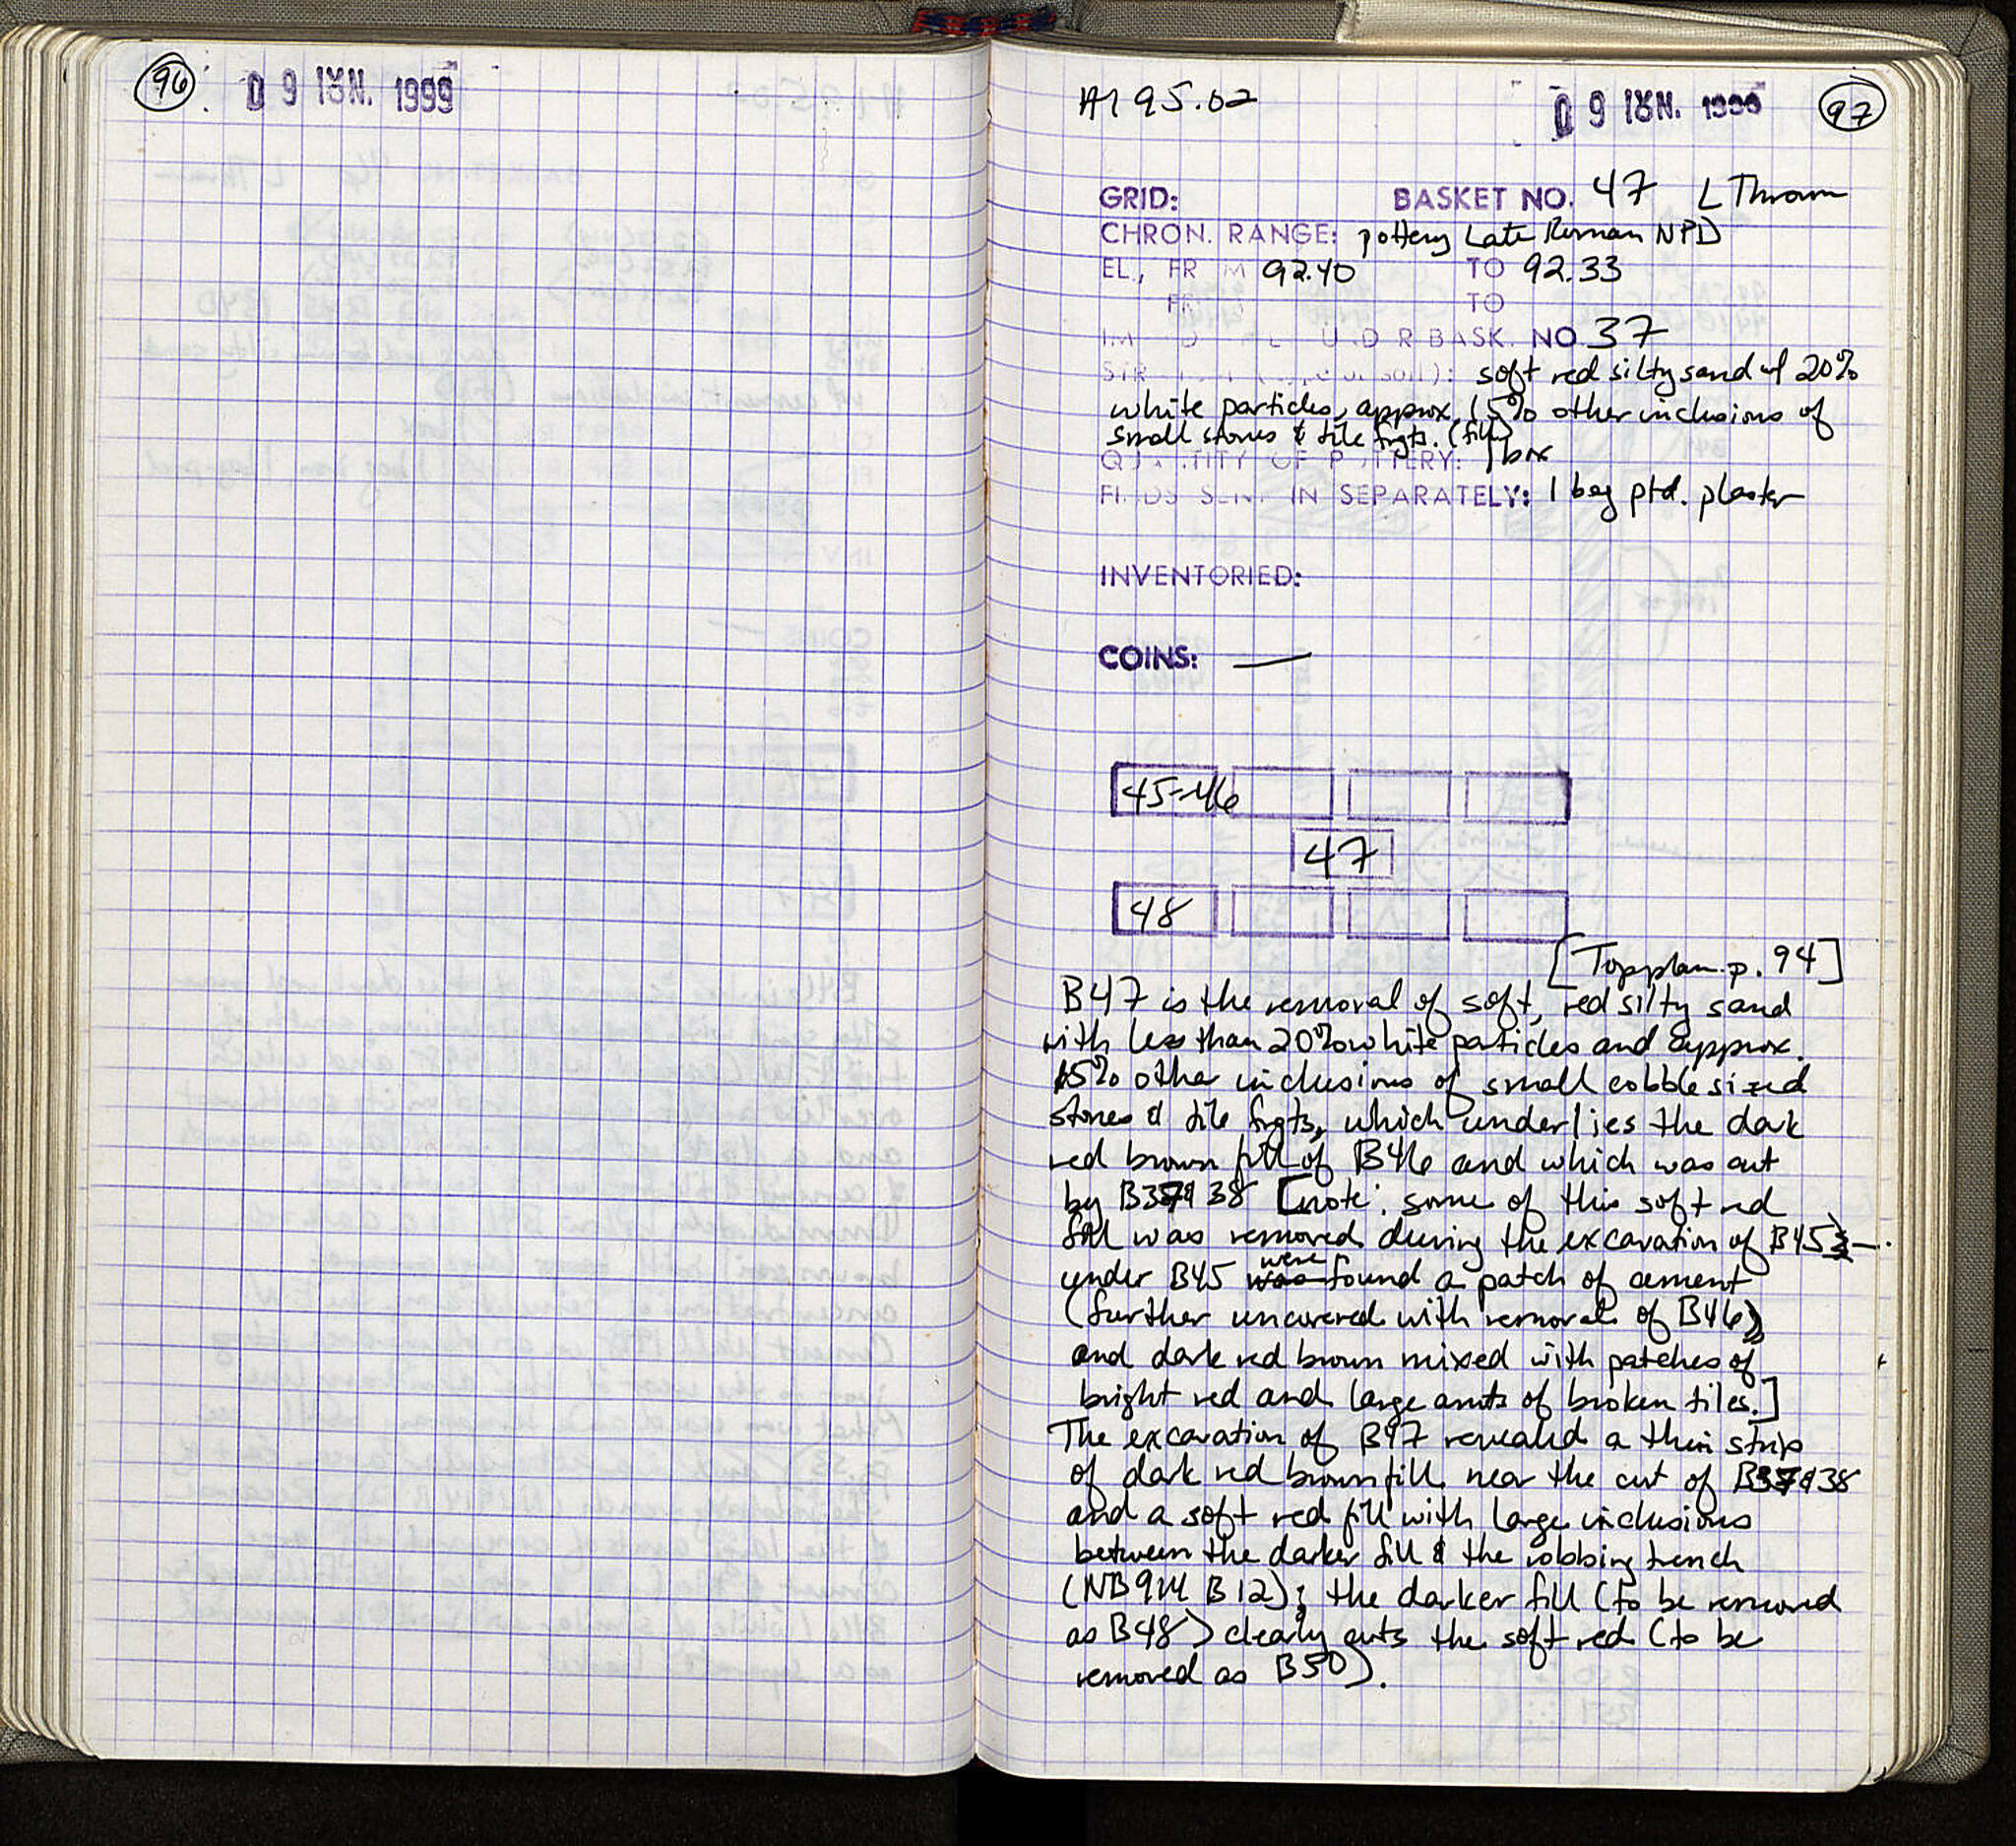 96
09 ΙΟΥΝ. 1999
A195.02
09 ΙΟΥΝ. 1999
97
GRID: BASKET NO. 47 L Thrown
CHRON. RANGE: pottery Late Roman NPD
EL., FR M 92.40 TO 92.33
FR TO
U.D R BASK. NO. 37
STR soil): soft red silty sand w/ 20%
white particles, approx. 15% other inclusions of
small stones & tile frgts. (fill)
QU TITY OF POTTERY: 1 box
FINDS SEN IN SEPARATELY: 1 bag ptd. plaster
INVENTORIED:
COINS: —
45-46
47
48
[Topplan p. 94]
B47 is the removal of soft, red silty sand
with less than 20% white paticles and approx.
15% other inclusions of small cobble sized
stones & tile frgts, which underlies the dark
red brown fill of B46 and which was cut
by B37&38 [note: some of this soft red
fill was removed during the excavation of B45; —.
under B45 were found a patch of cement
(further uncovered with removal of B46)
and dark red brown mixed with patches of
bright red and large amts of broken tiles.]
The excavation of B47 revealed a thin strip
of dark red brown fill near the cut of B37&38
and a soft red fill with large inclusions
between the darker fill & the robbing trench
(NB914 B12); the darker fill (to be removed
as B48) clearly cuts the soft red (to be
removed as B50).